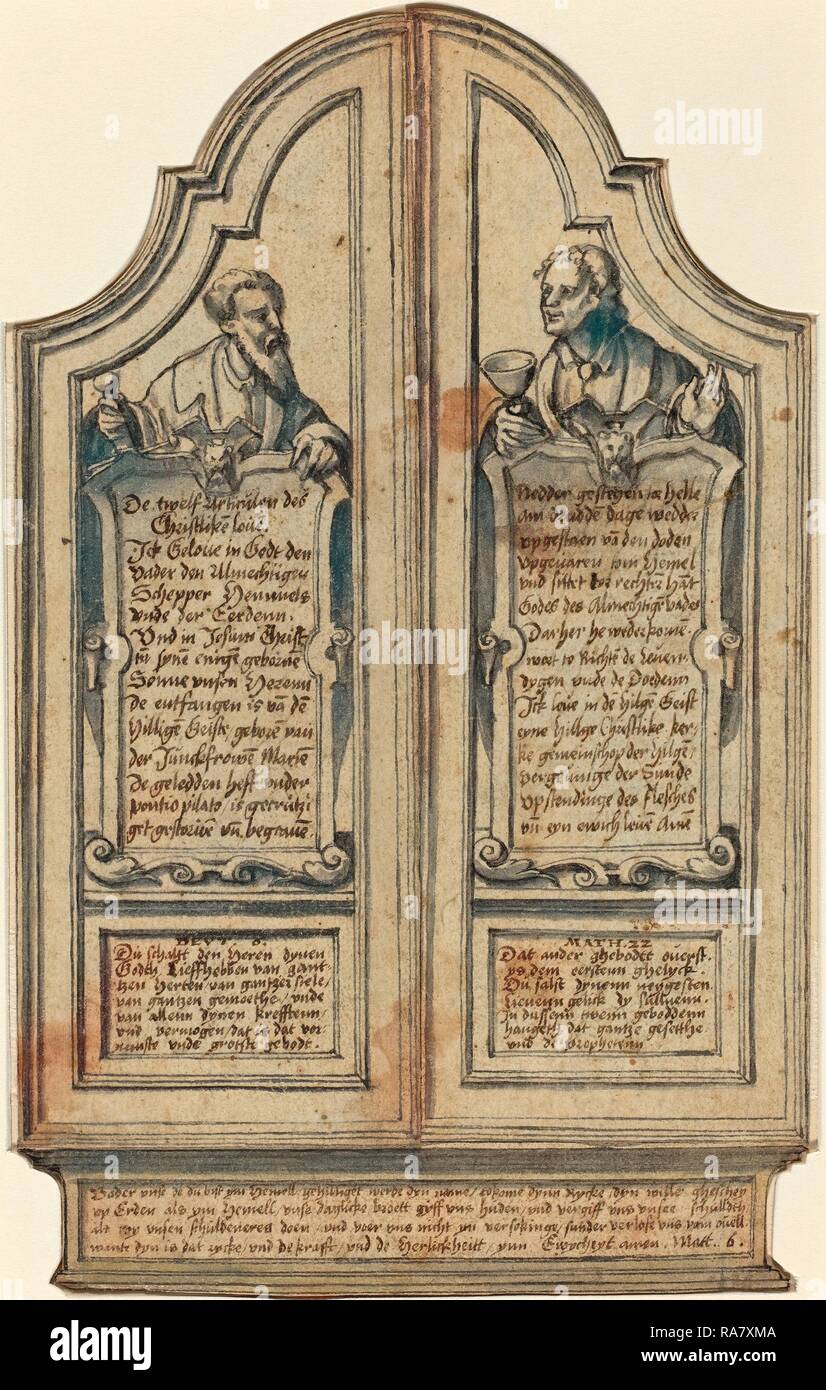 De twelf Articulen des
Christliken loue.
Ick Geloue in Godt den
Vader den Almechtigen
Schepper Hemmels
vnde der Eerdenn.
Vnd in Jesum Christ
tū synē enigē gebornē
Sonne vnsen Herenn
de entfangen is vā dē
Hilligē Geiste, geborē van
der Junckfrowen Mariē
De geledden heft vnder
pontio pilato, is gecrützi
get gestoruē vn̄ begrauē.
Nedder gestegen tor helle
Am dridde dage wedder
vpgestaen vā den doden
vpgeuaren tom Hemel
vnd sittet tor rechter hāt
Godes des Almechtigē vaders
Dar her he weder komē
wort to Richtē de leuen
dygen vnde de Doedenn
Ick loue in de hilgē Geist
eyne hillge Christlike ker
ke gemeinschop der hilgē,
vergeuinge der Sunde
vpstendinge des Flesches
vn̄ eyn ewich leuē Amē
DEVT. 6.
Du schalt den Heren dynen
Godth Lieffhebben van gant
tzen Herten, van gantzer siele,
van gantzen gemoethe, vnde
van allenn dynen krefftenn,
vnd vermogen, dat is dat vor
nemste vnde grotste gebodt.
MATH. 22
Dat ander ghebodet ouerst.
ys dem eerstenn ghelyck.
Du salst dynenn negesten.
lieuenn gelick dy salluenn.
In dussenn twenn geboddenn
hangeth dat gantze gesetthe
vnd de prophetenn
Vader vnse de du bist ym Hemell, gehilliget werde dyn name, tokome dynn Rycke, dyn wille gheschey
vp Erden als ym Hemell, vnse daglicke broett gyff vns huden, vnd vergiff vns vnsee schuldth
als wy vnsen schuldeneres doen, vnd voer vns nicht yn versokinge, sunder verlose vns vam ouell
wante dyn is dat rycke, vnd de kraft, vnd de Herlickheitt, ynn Ewycheyt amen. Matt. 6.
alamy
alamy
alamy
alamy
Image ID: RA7XMA
www.alamy.com